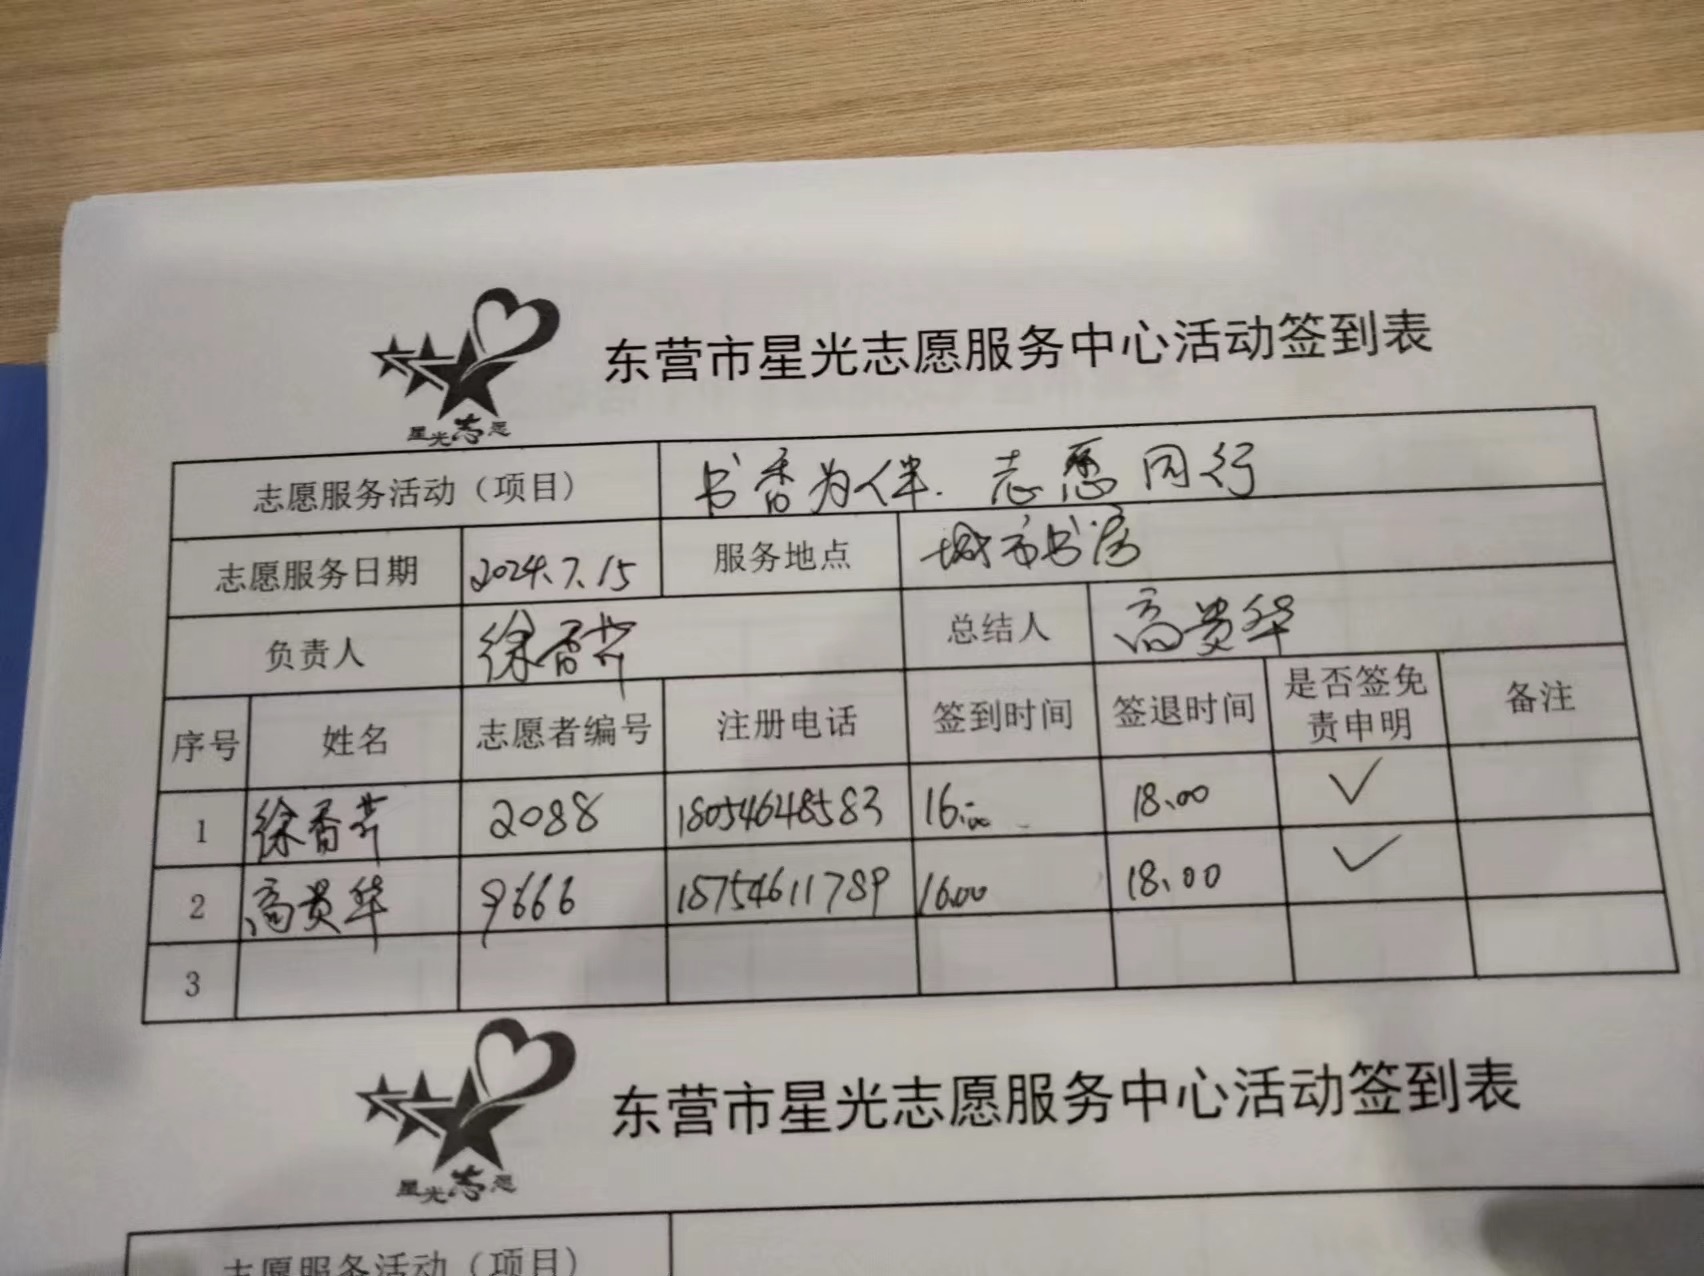 星光志愿
东营市星光志愿服务中心活动签到表
志愿服务活动（项目） 书香为伴.志愿同行
志愿服务日期 2024.7.15 服务地点 城市书房
负责人 徐香芹 总结人 高贵华
序号 姓名 志愿者编号 注册电话 签到时间 签退时间 是否签免责申明 备注
1 徐香芹 2088 18054648583 16:00 18.00 ✓
2 高贵华 9666 18754611789 16.00 18.00 ✓
3
星光志愿
东营市星光志愿服务中心活动签到表
志愿服务活动（项目）